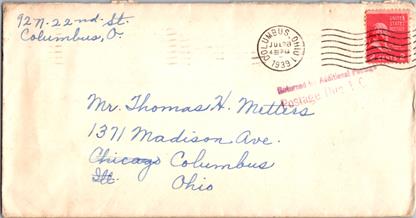 92 N. 22nd St.
Columbus, O.
COLUMBUS, OHIO
JUL 28
1939
UNITED STATES
Returned for Additional Postage
Postage Due 1 C
Mr. Thomas H. Metters
1371 Madison Ave.
Chicago Columbus
Ill. Ohio